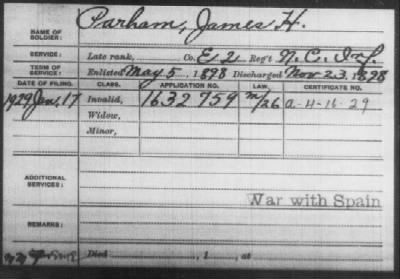 NAME OF SOLDIER: Parham, James H.
SERVICE: Late rank, Co. E 2 Reg't N.C. Inf.
TERM OF SERVICE: Enlisted May 5, 1898 Discharged Nov 23, 1898
DATE OF FILING. CLASS. APPLICATION NO. LAW. CERTIFICATE NO.
1929 Jan. 17 Invalid, 1632759 m/26 a-4-16-29
Widow,
Minor,
ADDITIONAL SERVICES:
War with Spain
REMARKS:
Died , 1 , at